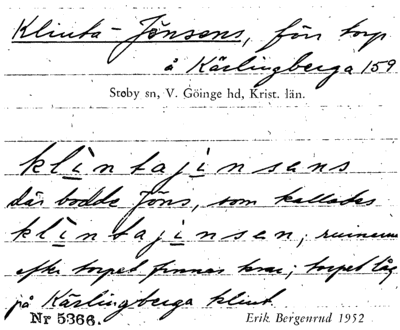 Klinta-Jönsens, förr torp
å Kärlingberga 159
Stoby sn, V. Göinge hd, Krist. län.
klintajinsens
där bodde Jöns, som kallades
klintajinsen, ruinerna
efter torpet finnas kvar; torpet låg
på Kärlingberga klint.
Nr 5366. Erik Bergenrud 1952